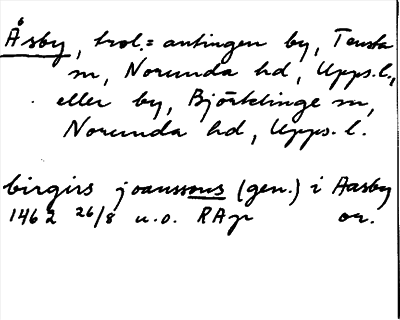 Åsby, trol. = antingen by, Tensta
sn, Norunda hd, Upps.l.,
eller by, Björklinge sn,
Norunda hd, Upps. l.
birgirs joanssons (gen.) i Aasby
1462 26/8 u.o. RAp or.